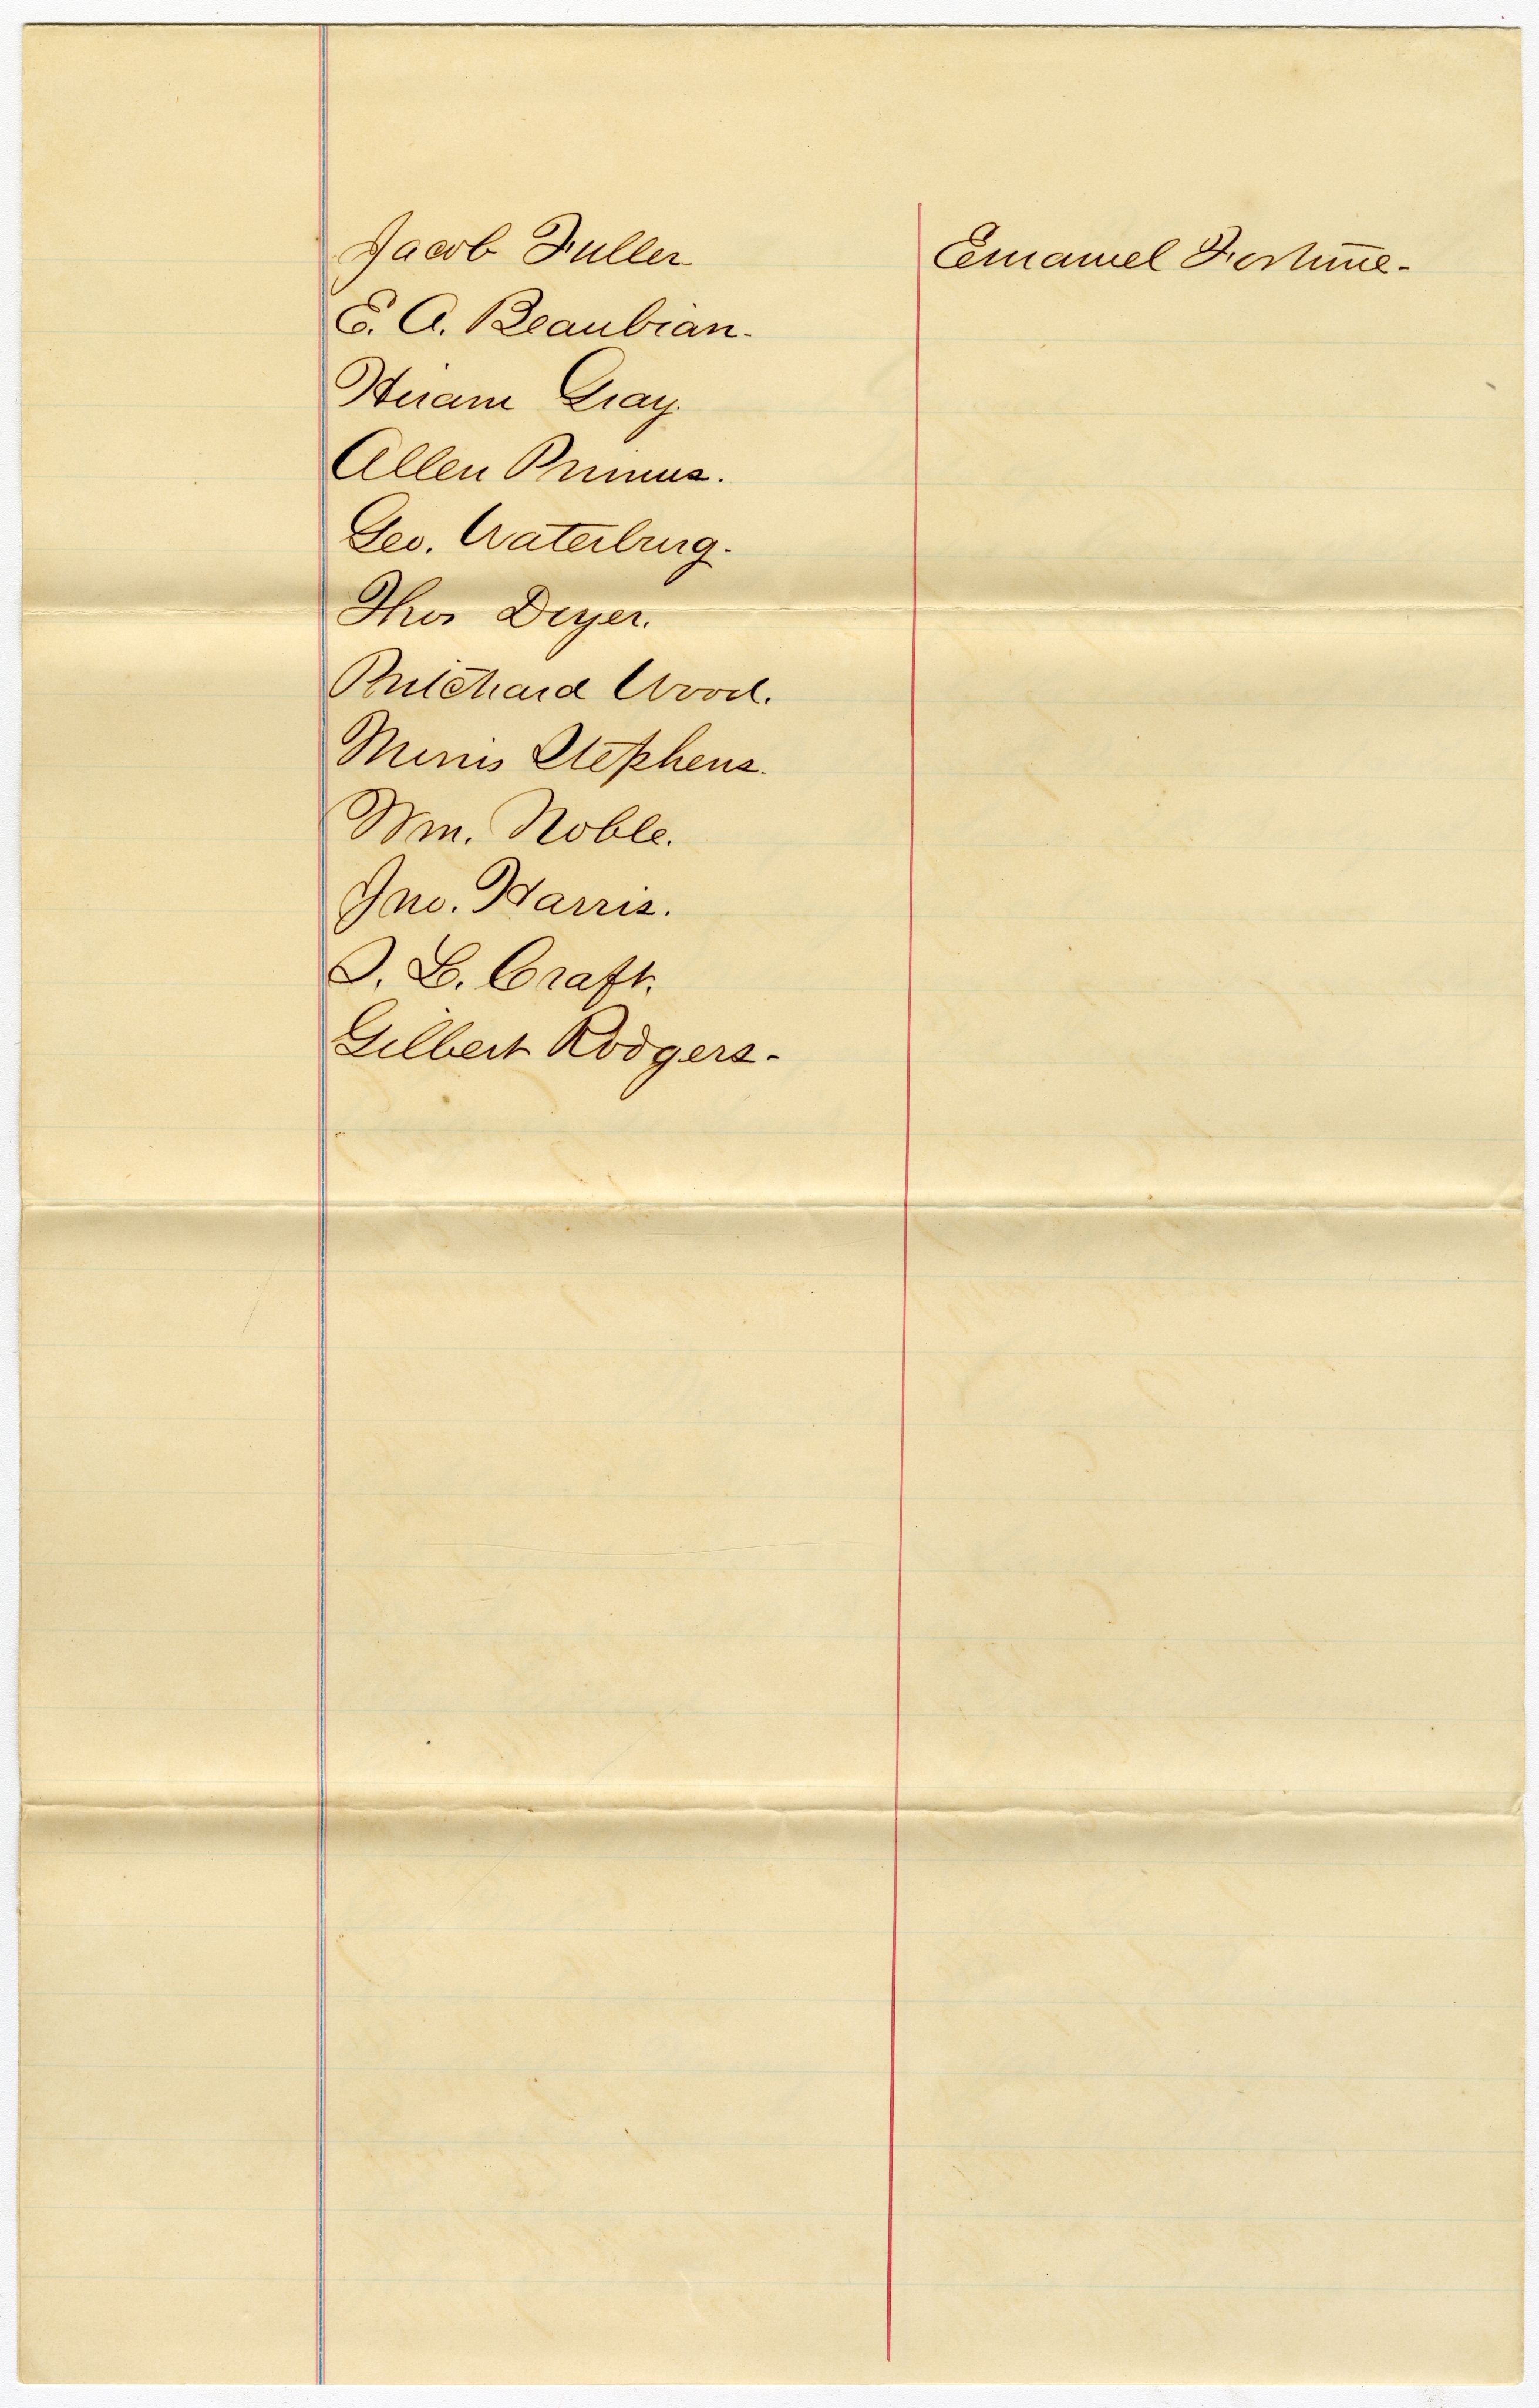 Jacob Fuller
E. A. Beaubian.
Hiram Gray.
Allen Primus.
Geo. Waterbury.
Thos Dyer.
Pritchard Wood.
Minis Stephens.
Wm. Noble.
Jno. Harris.
I. L. Craft.
Gilbert Rodgers.
Emanuel Fortune.